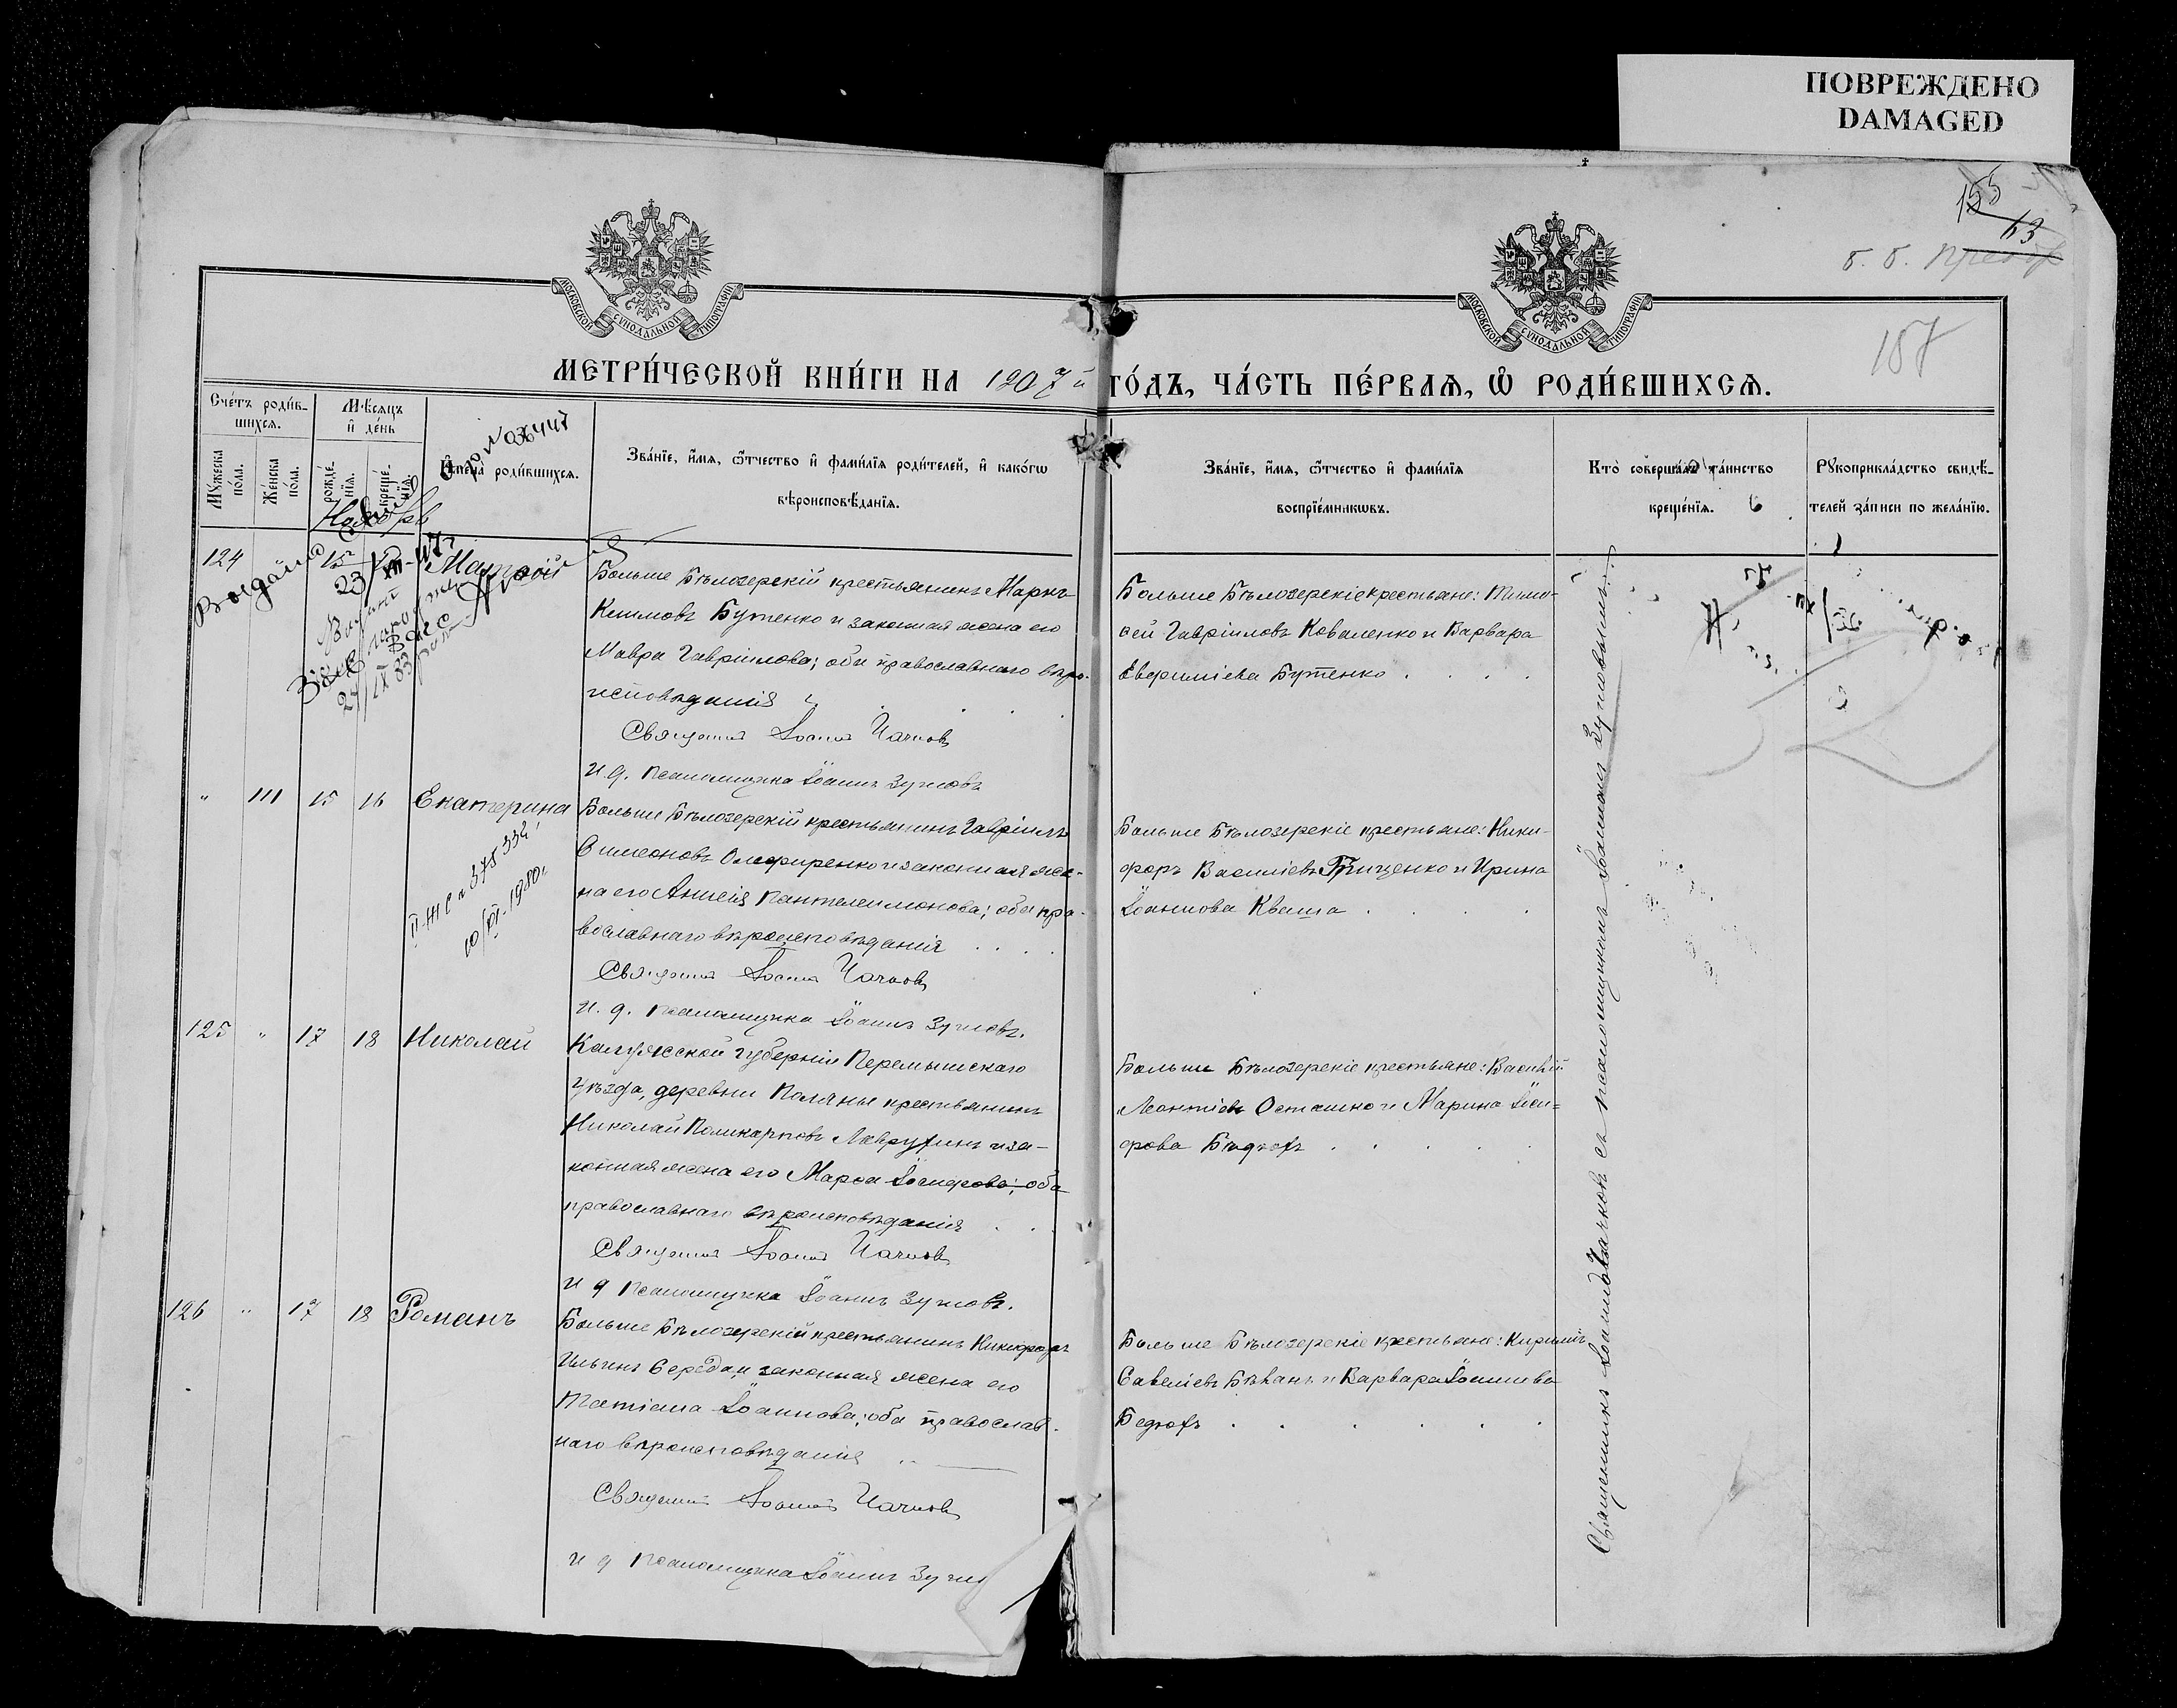 ПОВРЕЖДЕНО
DAMAGED
155
63
187
МОСКОВСКОЙ СѴНОДАЛЬНОЙ ТИПОГРАФІИ
МОСКОВСКОЙ СѴНОДАЛЬНОЙ ТИПОГРАФІИ
МЕТРИ́ЧЕСКОЙ КНИ́ГИ НА 1907 й ГО́ДЪ, ЧА́СТЬ ПЕ́РВАЯ, Ѽ РОДИ́ВШИХСЯ.
Сче́тъ роди́в-
шихся.
Мѣ́сяцъ
и҆ де́нь
Мꙋ́жеска
по́ла.
Же́нска
по́ла.
рожде́-
нїѧ.
креще́-
нїѧ.
И҆мена̀ роди́вшихся.
Зва́нїе, и҆́мя, ѻ҆́тчество и҆ фами́лїя роди́телей, и҆ како́гѡ
вѣроисповѣ́данїя.
Зва́нїе, и҆́мя, ѻ҆́тчество и҆ фами́лїя
воспрїе́мникѡвъ.
Кто̀ соверша́лъ та́инство
креще́нїя.
Рꙋкоприкла́дство свидѣ́-
телей за́писи по жела́нїю.
Ноябрь
124
15
Матѳей
Больше Бѣлозерскій крестьянинъ Маркъ
Климовъ Бутенко и законная жена его
Мавра Гавріилова; оба православнаго вѣро-
исповѣданія
Священникъ Іоаннъ Чачковъ
и. д. псаломщика Іоаннъ Зуповъ
Больше Бѣлозерскіе крестьяне: Тимо-
ѳей Гавріиловъ Коваленко и Варвара
Евфиміева Бутенко
"
111
15
16
Екатерина
Больше Бѣлозерскій крестьянинъ Гавріилъ
Симеоновъ Олефиренко и законная же-
на его Анисія Пантелеимонова; оба пра-
вославнаго вѣроисповѣданія
Священникъ Іоаннъ Чачковъ
и. д. псаломщика Іоаннъ Зуповъ.
Больше Бѣлозерскіе крестьяне: Ники-
форъ Василіевъ Грищенко и Ирина
Іоаннова Кваша
125
"
17
18
Николай
Калужской губерніи Перемышскаго
уѣзда, деревни Поляны крестьянинъ
Николай Поликарповъ Лаврухинъ и за-
конная жена его Марѳа Іосифова; оба
православнаго вѣроисповѣданія
Священникъ Іоаннъ Чачковъ
и д псаломщика Іоаннъ Зуповъ.
Больше Бѣлозерскіе крестьяне: Василій
Леонтіевъ Осташко и Марина Іоси-
фова Бѣдюхъ
126
"
17
18
Романъ
Больше Бѣлозерскій крестьянинъ Никифоръ
Ильинъ Середа и законная жена его
Татіана Іоаннова; оба православ-
наго вѣроисповѣданія
Священникъ Іоаннъ Чачковъ
и д псаломщика Іоаннъ Зуп
Больше Бѣлозерскіе крестьяне: Кириллъ
Савеліевъ Бѣланъ и Варвара Іоаннова
Бедюхъ
Священникъ Іоаннъ Чачковъ съ псаломщикомъ Іоанномъ Зуповымъ